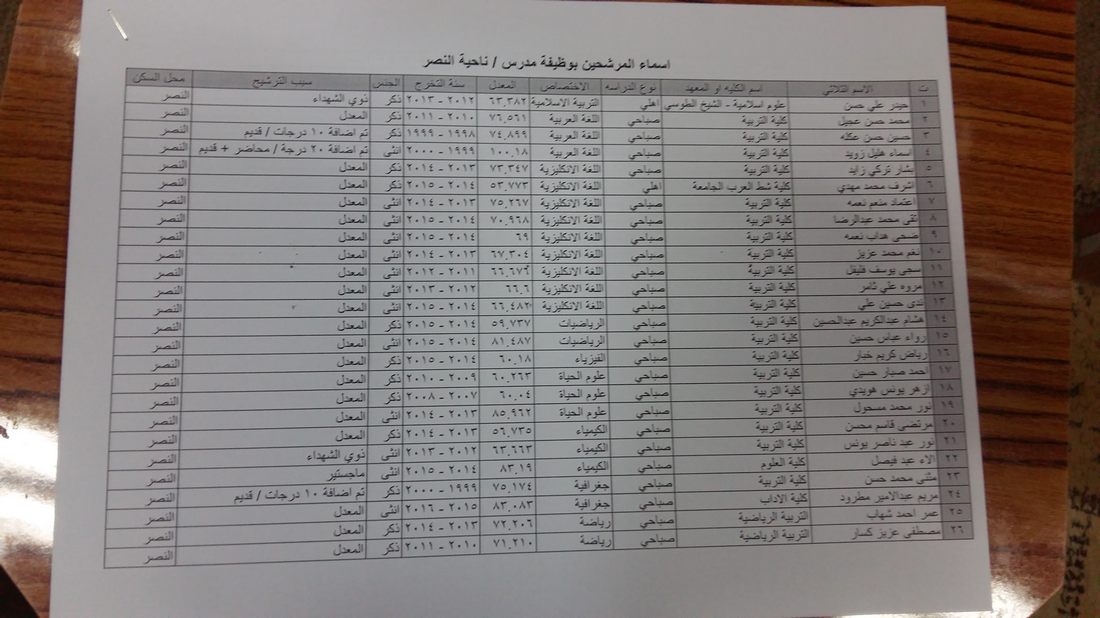 اسماء المرشحين بوظيفة مدرس / ناحية النصر
ت الاسم الثلاثي اسم الكليه او المعهد نوع الدراسه الاختصاص المعدل سنة التخرج الجنس سبب الترشيح محل السكن
١ حيدر علي حسن علوم اسلامية - الشيخ الطوسي اهلي التربية الاسلامية ٦٣,٣٨٢ ٢٠١٢ - ٢٠١٣ ذكر ذوي الشهداء النصر
٢ محمد حسن عجيل كلية التربية صباحي اللغة العربية ٧٦,٥٦١ ٢٠١٠ - ٢٠١١ ذكر المعدل النصر
٣ حسين حسن عكله كلية التربية صباحي اللغة العربية ٧٤,٨٩٩ ١٩٩٨ - ١٩٩٩ ذكر تم اضافة ١٠ درجات / قديم النصر
٤ اسماء هليل زويد كلية التربية صباحي اللغة العربية ١٠٠,١٨ ١٩٩٩ - ٢٠٠٠ انثى تم اضافة ٢٠ درجة / محاضر + قديم النصر
٥ بشار تركي زايد كلية التربية صباحي اللغة الانكليزية ٧٣,٣٤٧ ٢٠١٣ - ٢٠١٤ ذكر المعدل النصر
٦ اشرف محمد مهدي كلية شط العرب الجامعة اهلي اللغة الانكليزية ٥٣,٧٧٣ ٢٠١٤ - ٢٠١٥ ذكر المعدل النصر
٧ اعتماد منعم نعمه كلية التربية صباحي اللغة الانكليزية ٧٥,٢٦٧ ٢٠١٣ - ٢٠١٤ انثى المعدل النصر
٨ تقى محمد عبدالرضا كلية التربية صباحي اللغة الانكليزية ٧٠,٩٦٨ ٢٠١٤ - ٢٠١٥ انثى المعدل النصر
٩ ضحى هداب نعمه كلية التربية صباحي اللغة الانكليزية ٦٩ ٢٠١٤ - ٢٠١٥ انثى المعدل النصر
١٠ نغم محمد عزيز كلية التربية صباحي اللغة الانكليزية ٦٧,٣٠٤ ٢٠١٣ - ٢٠١٤ انثى المعدل النصر
١١ سجى يوسف فليفل كلية التربية صباحي اللغة الانكليزية ٦٦,٦٧٦ ٢٠١١ - ٢٠١٢ انثى المعدل النصر
١٢ مروه علي ثامر كلية التربية صباحي اللغة الانكليزية ٦٦,٦ ٢٠١٢ - ٢٠١٣ انثى المعدل النصر
١٣ ندى حسين علي كلية التربية صباحي اللغة الانكليزية ٦٦,٤٨٢ ٢٠١٤ - ٢٠١٥ انثى المعدل النصر
١٤ هشام عبدالكريم عبدالحسين كلية التربية صباحي الرياضيات ٥٩,٧٣٧ ٢٠١٤ - ٢٠١٥ ذكر المعدل النصر
١٥ رواء عباس حسين كلية التربية صباحي الرياضيات ٨١,٤٨٧ ٢٠١٤ - ٢٠١٥ انثى المعدل النصر
١٦ رياض كريم خبار كلية التربية صباحي الفيزياء ٦٠,١٨ ٢٠١٤ - ٢٠١٥ ذكر المعدل النصر
١٧ احمد صبار حسين كلية التربية صباحي علوم الحياة ٦٠,٢٦٣ ٢٠٠٩ - ٢٠١٠ ذكر المعدل النصر
١٨ ازهر يونس هويدي كلية التربية صباحي علوم الحياة ٦٠,٠٤ ٢٠٠٧ - ٢٠٠٨ ذكر المعدل النصر
١٩ نور محمد مسحول كلية التربية صباحي علوم الحياة ٨٥,٩٦٢ ٢٠١٣ - ٢٠١٤ انثى المعدل النصر
٢٠ مرتضى قاسم محسن كلية التربية صباحي الكيمياء ٥٦,٧٣٥ ٢٠١٣ - ٢٠١٤ ذكر المعدل النصر
٢١ نور عبد ناصر يونس كلية التربية صباحي الكيمياء ٦٣,٦٦٣ ٢٠١٢ - ٢٠١٣ انثى ذوي الشهداء النصر
٢٢ الاء عبد فيصل كلية العلوم صباحي الكيمياء ٨٣,١٩ ٢٠١٤ - ٢٠١٥ انثى ماجستير النصر
٢٣ مثنى محمد حسن كلية التربية صباحي جغرافية ٧٥,١٧٤ ١٩٩٩ - ٢٠٠٠ ذكر تم اضافة ١٠ درجات / قديم النصر
٢٤ مريم عبدالامير مطرود كلية الاداب صباحي جغرافية ٨٣,٠٨٣ ٢٠١٥ - ٢٠١٦ انثى المعدل النصر
٢٥ عمر احمد شهاب التربية الرياضية صباحي رياضة ٧٢,٢٠٦ ٢٠١٣ - ٢٠١٤ ذكر المعدل النصر
٢٦ مصطفى عزيز كسار التربية الرياضية صباحي رياضة ٧١,٢١٠ ٢٠١٠ - ٢٠١١ ذكر المعدل النصر